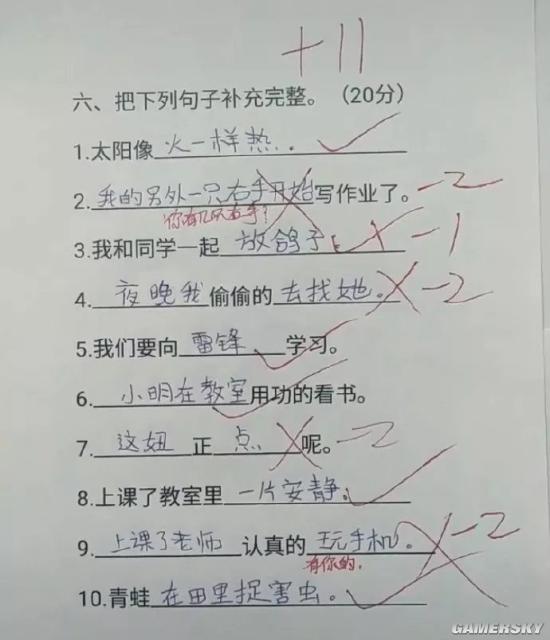 +11
六、把下列句子补充完整。（20分）
1.太阳像火一样热.
2.我的另外一只右手开始写作业了。-2
你有几只右手?
3.我和同学一起放鸽子。-1
4.夜晚我偷偷的去找她。-2
5.我们要向雷锋学习。
6.小明在教室用功的看书。
7.这妞正点呢。-2
8.上课了教室里一片安静。
9.上课了老师认真的玩手机。-2
有你的.
10.青蛙在田里捉害虫。
GAMERSKY